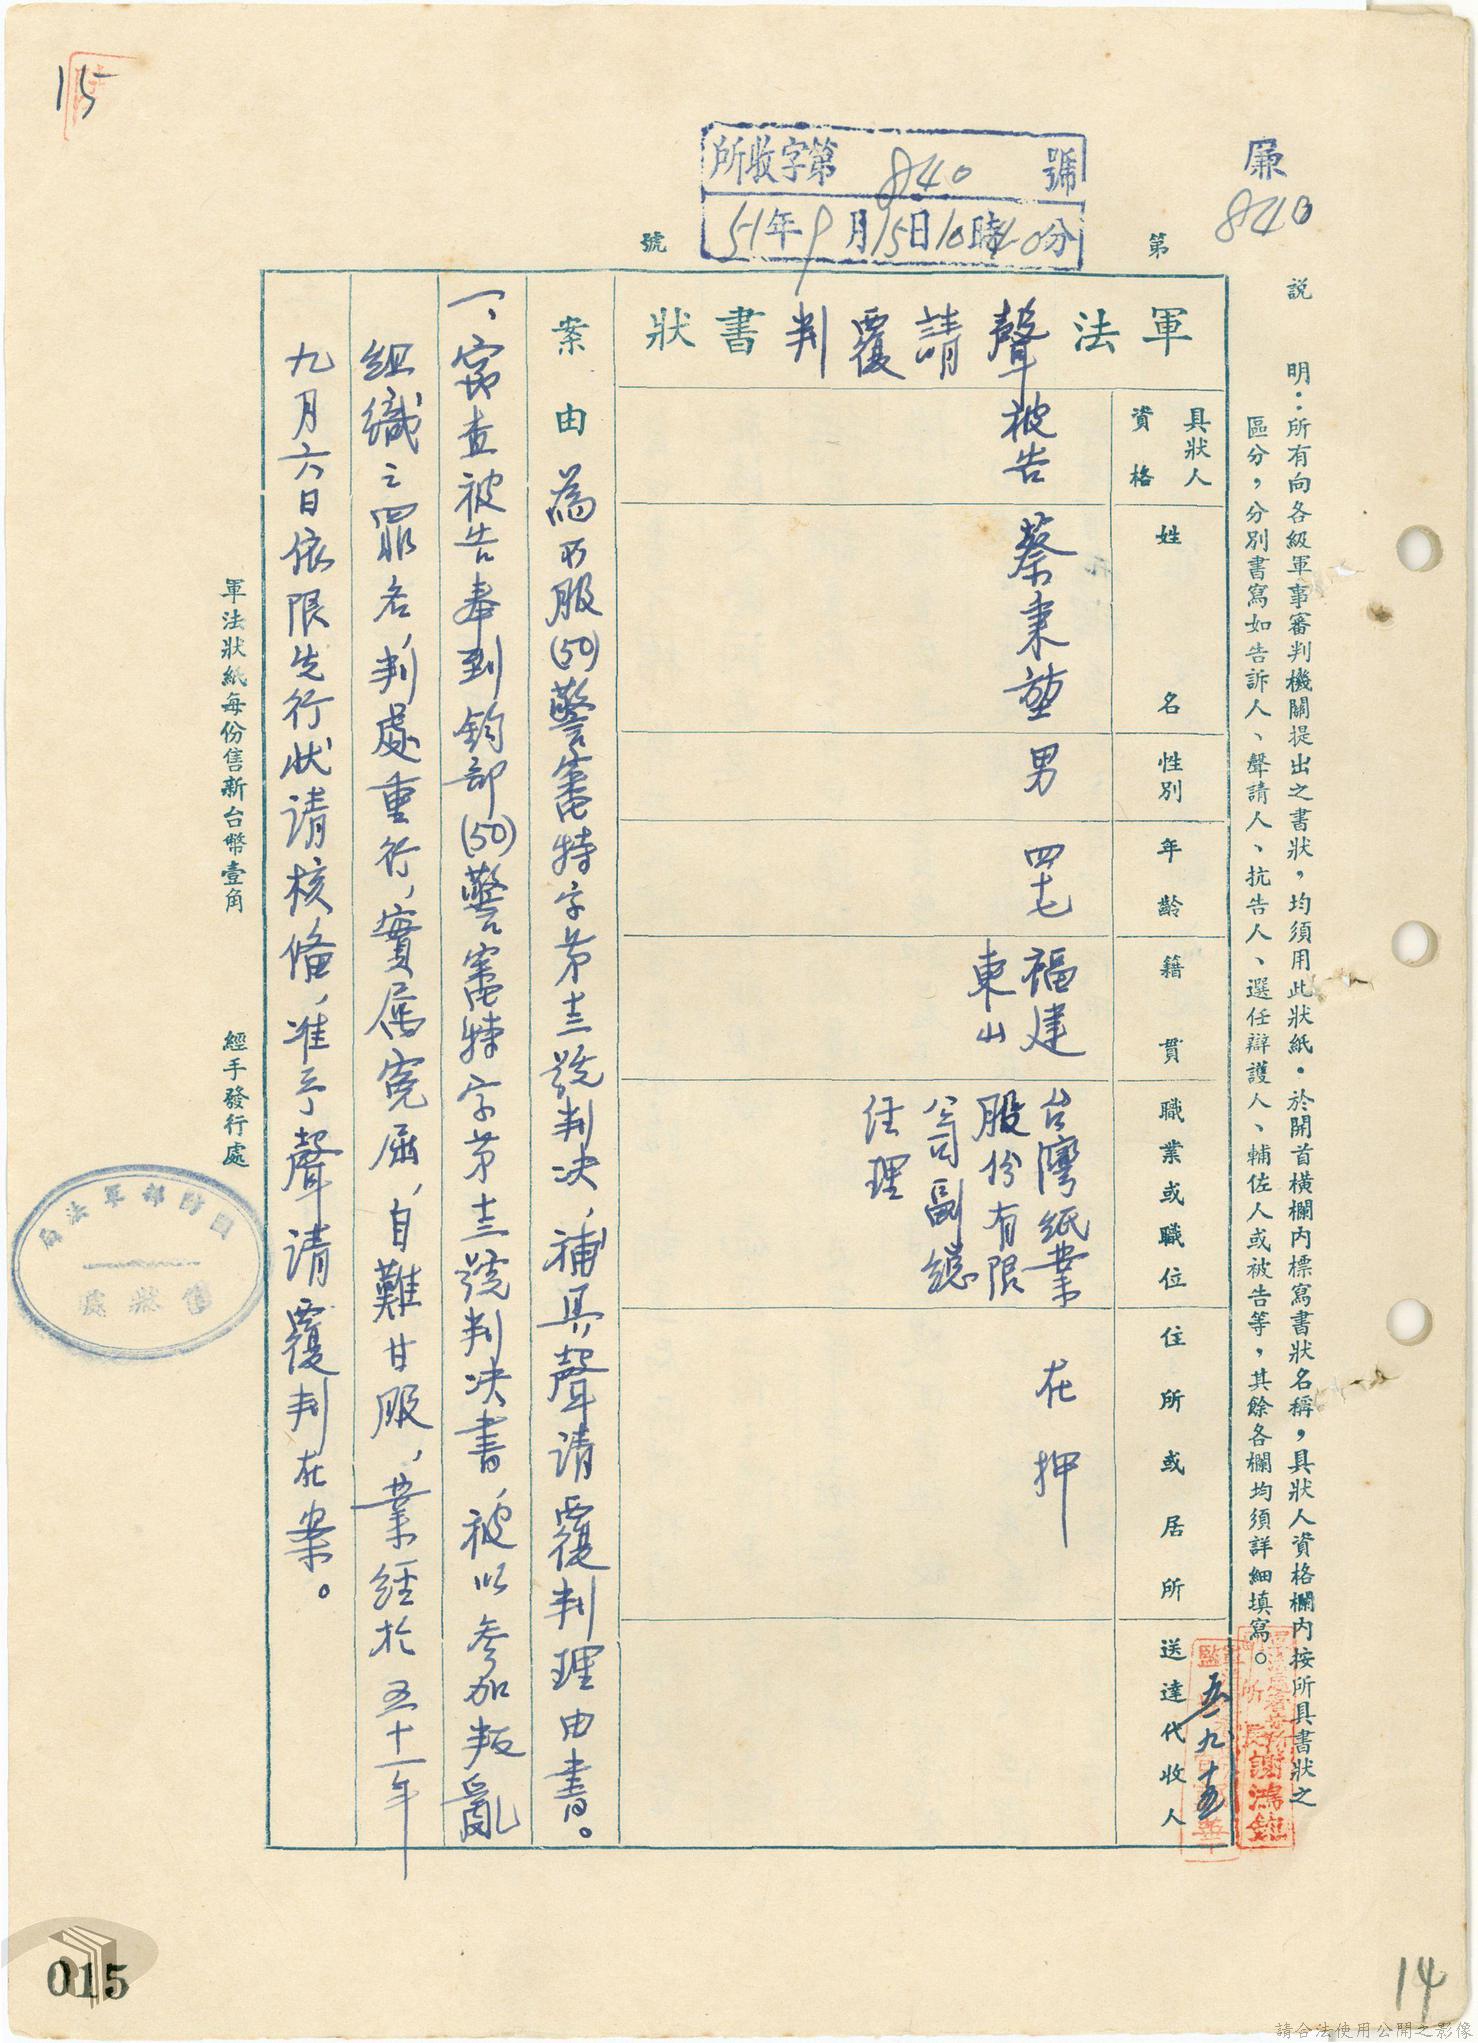 15
廉
840
所收字第840號
51年9月15日10時40分
第
號
說明：所有向各級軍事審判機關提出之書狀，均須用此狀紙。於開首橫欄內標寫書狀名稱，具狀人資格欄內按所具書狀之
區分，分別書寫如告訴人、聲請人、抗告人、選任辯護人、輔佐人或被告等，其餘各欄均須詳細填寫。
軍法聲請覆判書狀
具狀人
資格
姓名
性別
年齡
籍貫
職業或職位
住所或居所
送達代收人
被告
蔡秉堃
男
四十七
福建
東山
台灣紙業
股份有限
公司副總
經理
在押
案由
為不服(50)警審特字第十三號判決，補具聲請覆判理由書。
一、竊查被告奉到鈞部(50)警審特字第十三號判決書，被以參加叛亂
組織之罪名，判處重行，實屬寃屈，自難甘服，業經於五十一年
九月六日依限先行狀請核備，准予聲請覆判在案。
五一九十五
謝鴻
軍法狀紙每份售新台幣壹角
經手發行處
國防部軍法局
售狀處
015
14
請合法使用公開之影像